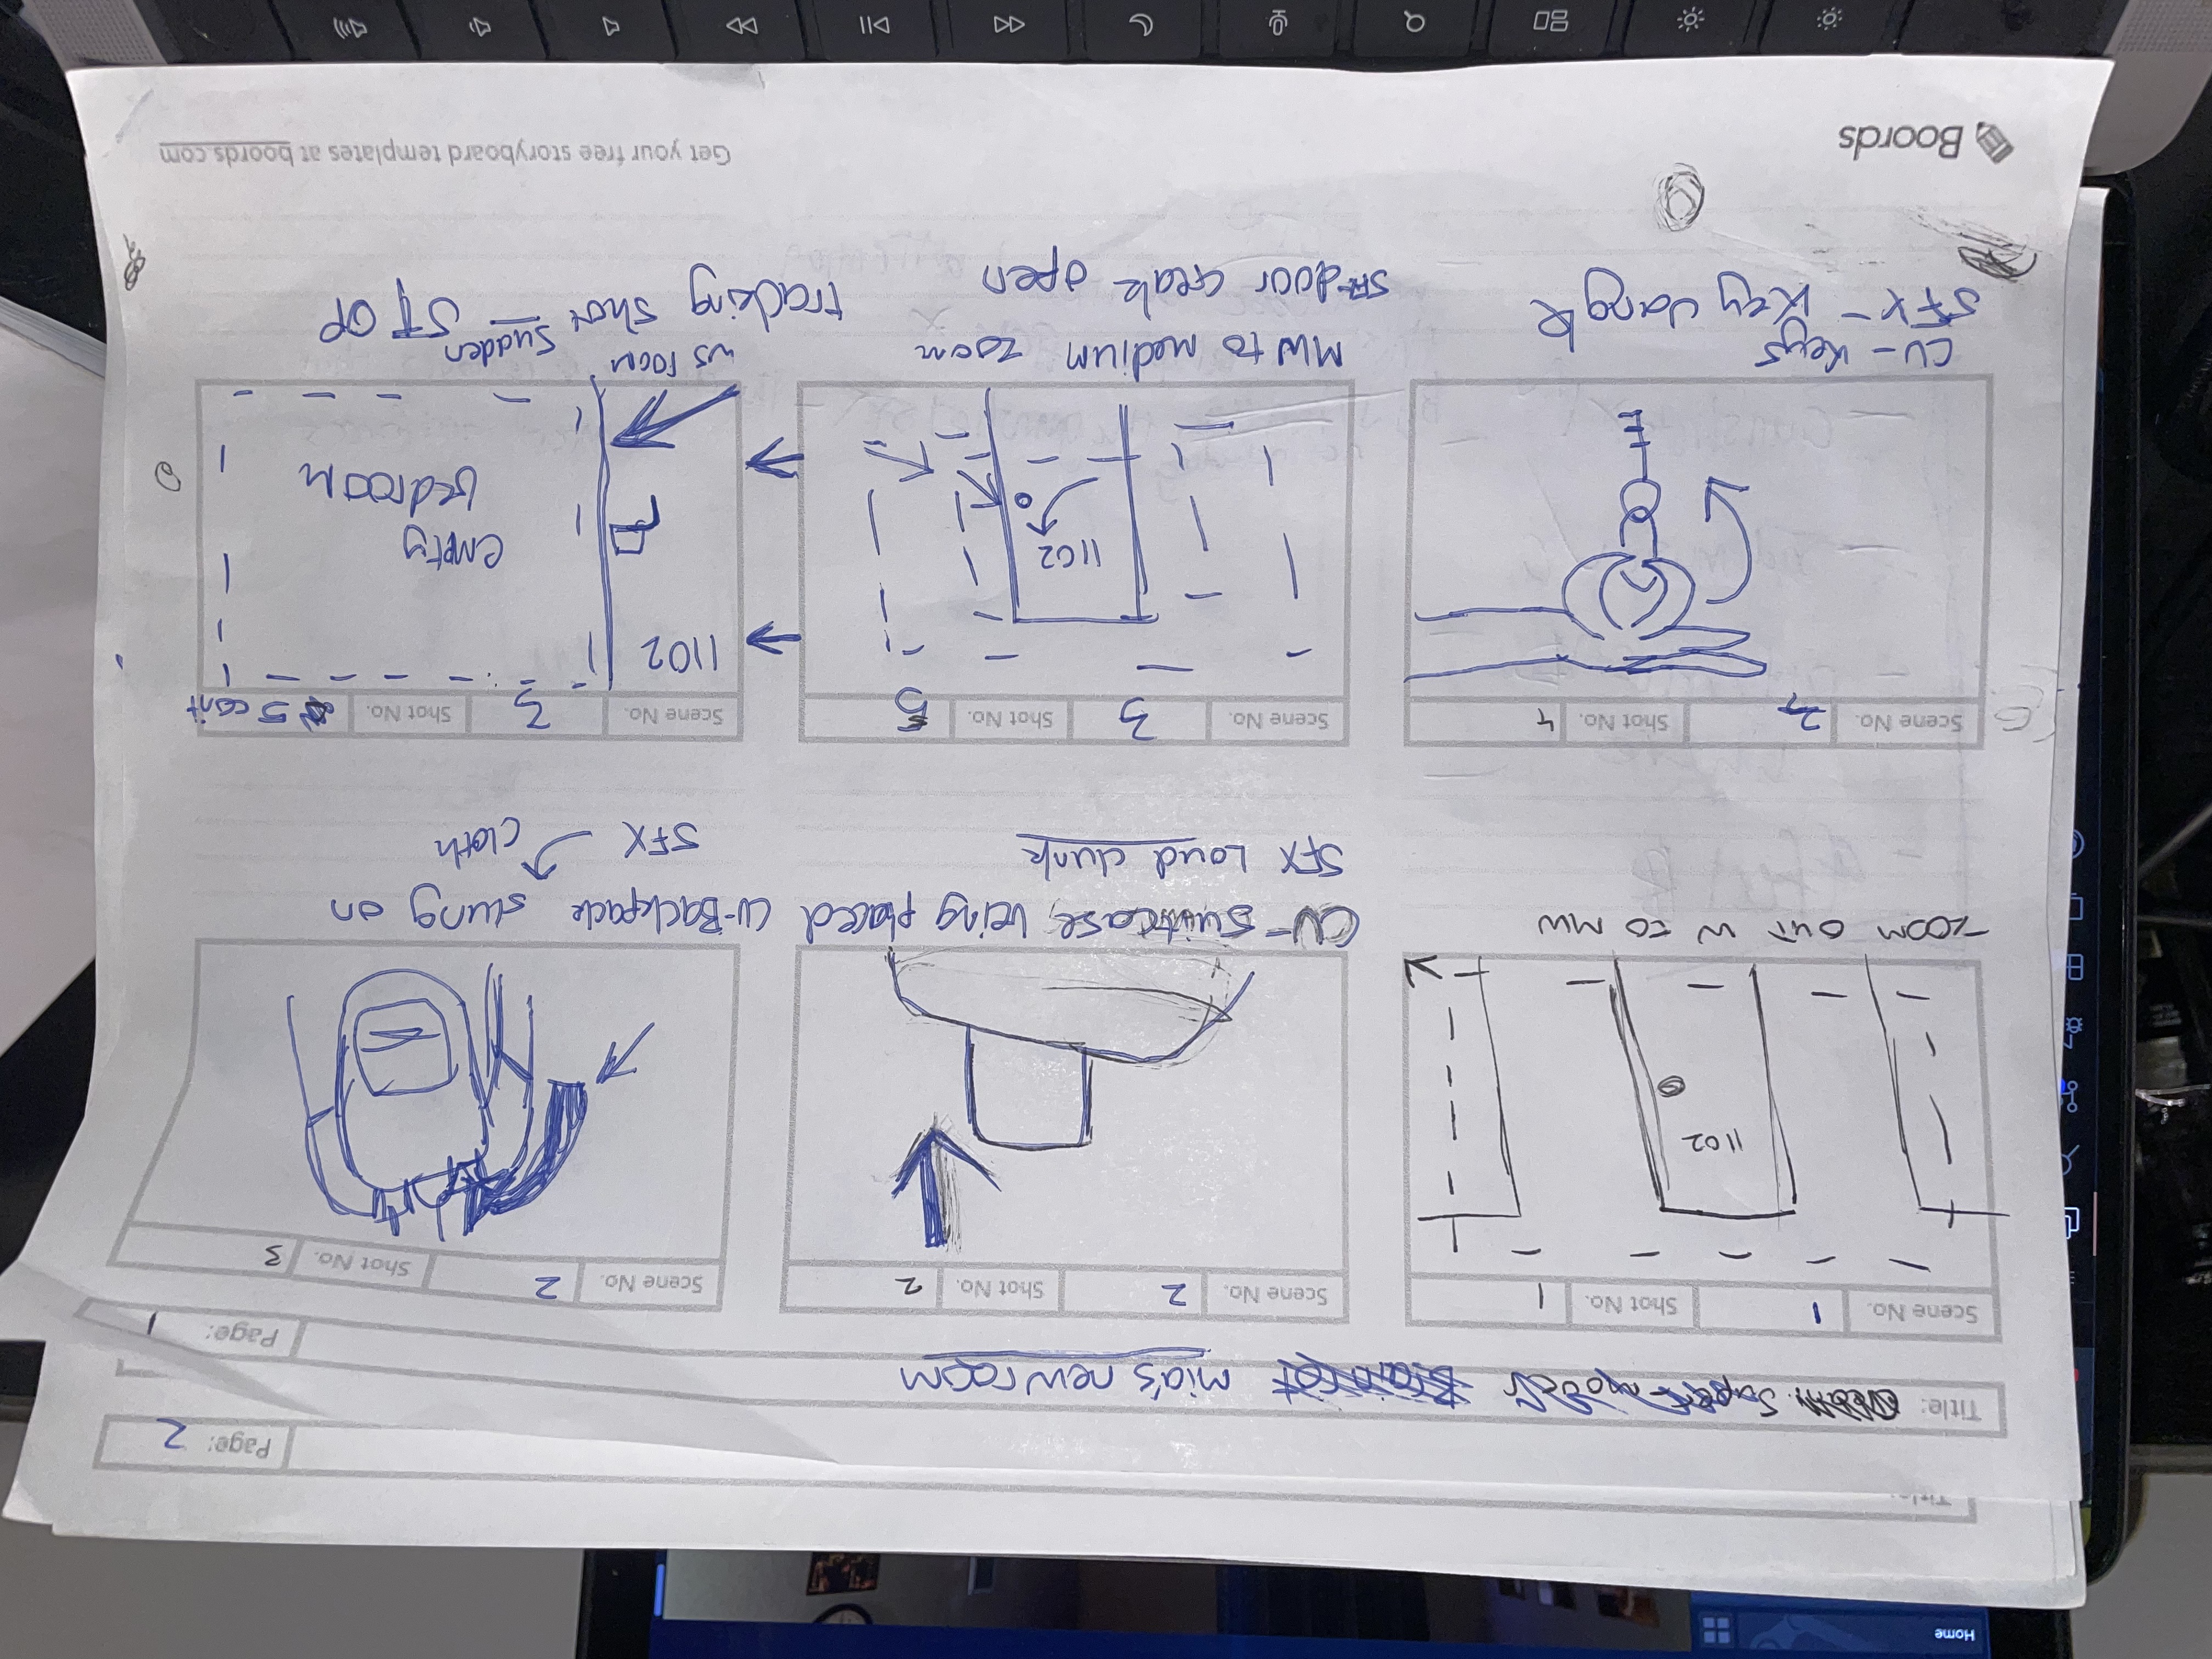 Home
Title:
Page: 2
Title: Super-model Brainrot mia's new room
Page: 1
Scene No. 1 Shot No. 1
1102
ZOOM OUT W to MW
Scene No. 2 Shot No. 2
CU- Suitcase, being placed
SFX Loud clunk
Scene No. 2 Shot No. 3
CU-Backpack slung on
SFX cloth
Scene No. 2 Shot No. 4
CU- Keys
SFX- Key Jangle
Scene No. 3 Shot No. 5
1102
MW to medium zoom
door creak open
Scene No. 3 Shot No. 5 cont
1102
empty
bedroom
WS room
tracking shot sudden STOP
Boords
Get your free storyboard templates at boords.com